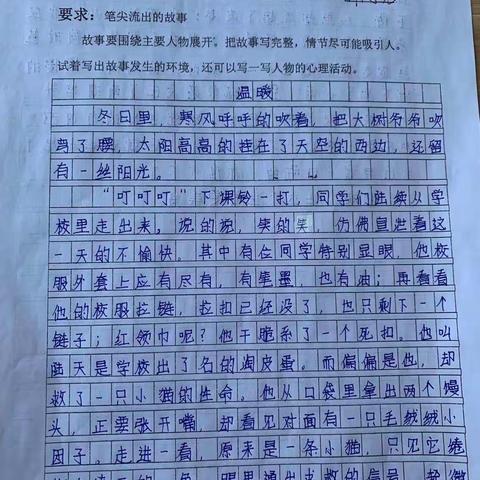 要求：笔尖流出的故事
故事要围绕主要人物展开。把故事写完整，情节尽可能吸引人。
试着写出故事发生的环境，还可以写一写人物的心理活动。
温暖
冬日里，寒风呼呼的吹着，把大树爷爷吹
弯了腰，太阳高高的挂在了天空的西边，还留
有一丝阳光。
“叮叮叮”下课铃一打，同学们陆续从学
校里走出来。说的说，笑的笑，仿佛宣泄着这
一天的不愉快。其中有位同学特别显眼，他校
服外套上应有尽有，有笔墨，也有油；再看看
他的校服拉链，拉扣已经没了，也只剩下一个
链子；红领巾呢？他干脆系了一个死扣。他叫
陆天是学校出了名的调皮蛋。而偏偏是他，却
救了一只小猫的生命。他从口袋里拿出两个馒
头，正要张开嘴，却看见对面有一只毛绒绒小
因子。走进一看，原来是一条小猫，只见它卷
眼里涌出求救的信号